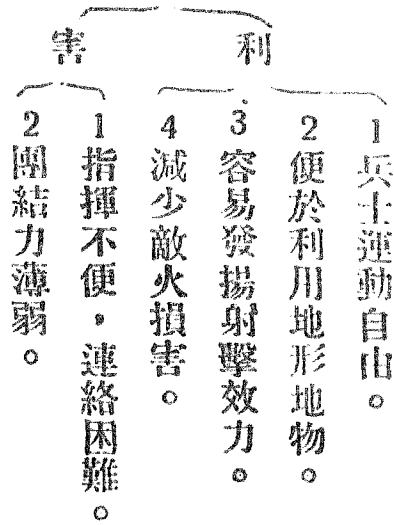 利
1兵士運動自由。
2便於利用地形地物。
3容易發揚射擊效力。
4減少敵火損害。
害
1指揮不便,連絡困難。
2團結力薄弱。